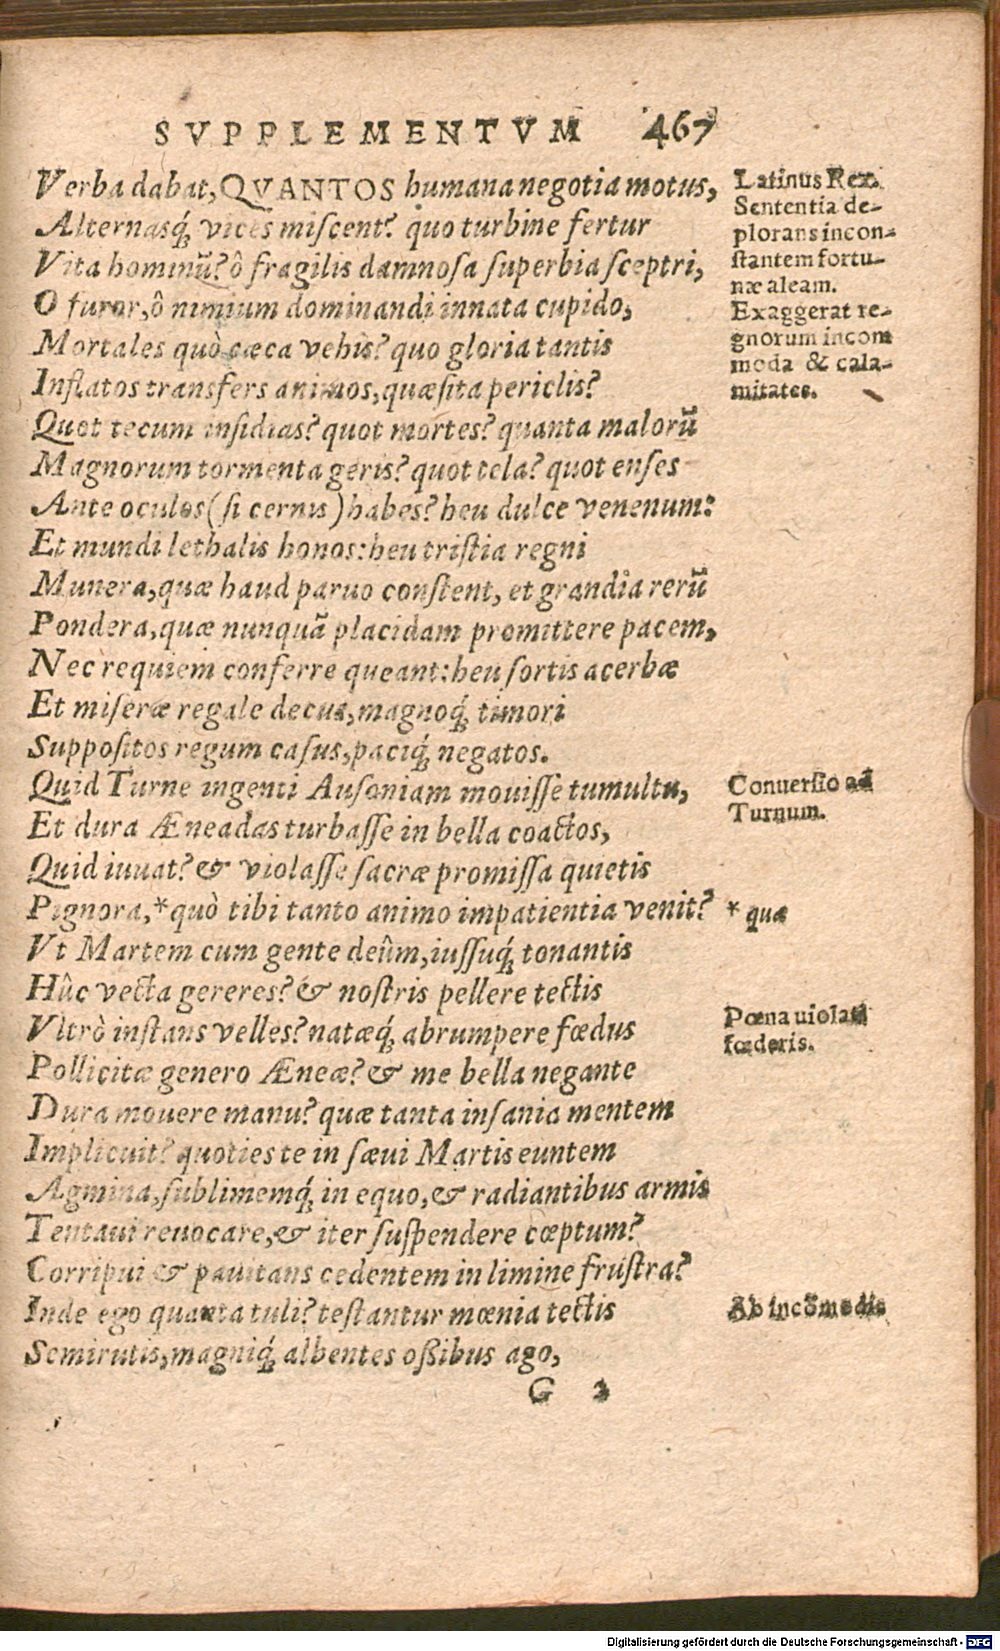 SVPPLEMENTVM 467
Verba dabat, QVANTOS humana negotia motus,
Alternasq́; vices miſcent? quo turbine fertur
Vita hominũ? ô fragilis damnoſa ſuperbia ſceptri,
O furor, ô nimium dominandi innata cupido,
Mortales quò cæca vehis? quo gloria tantis
Inflatos transfers animos, quæſita periclis?
Quot tecum inſidias? quot mortes? quanta malorũ
Magnorum tormenta geris? quot tela? quot enſes
Ante oculos (ſi cernis) habes? heu dulce venenum:
Et mundi lethalis honos: heu triſtia regni
Munera, quæ haud paruo conſtent, et grandia rerũ
Pondera, quæ nunquã placidam promittere pacem,
Nec requiem conferre queant: heu ſortis acerbæ
Et miſeræ regale decus, magnoq́; timori
Suppoſitos regum caſus, paciq́; negatos.
Quid Turne ingenti Auſoniam mouiſſe tumultu,
Et dura Æneadas turbaſſe in bella coactos,
Quid iuuat? & violaſſe ſacræ promiſſa quietis
Pignora,* quò tibi tanto animo impatientia venit?
Vt Martem cum gente deûm, iuſſuq́; tonantis
Hûc vecta gereres? & noſtris pellere tectis
Vltrò inſtans velles? natæq́; abrumpere fœdus
Pollicitæ genero Æneæ? & me bella negante
Dura mouere manu? quæ tanta inſania mentem
Implicuit? quoties te in ſæui Martis euntem
Agmina, ſublimemq́; in equo, & radiantibus armis
Tentaui reuocare, & iter ſuſpendere cœptum?
Corripui & pauitans cedentem in limine fruſtra?
Inde ego quanta tuli? teſtantur mœnia tectis
Semirutis, magniq́; albentes oßibus ago,
G 2
Latinus Rex.
Sententia de-
plorans incon-
ſtantem fortu-
næ aleam.
Exaggerat re-
gnorum incom
moda & cala-
mitates.
Conuerſio ad
Turnum.
* quæ
Pœna uiolati
fœderis.
Ab incõmodis
Digitalisierung gefördert durch die Deutsche Forschungsgemeinschaft - DFG